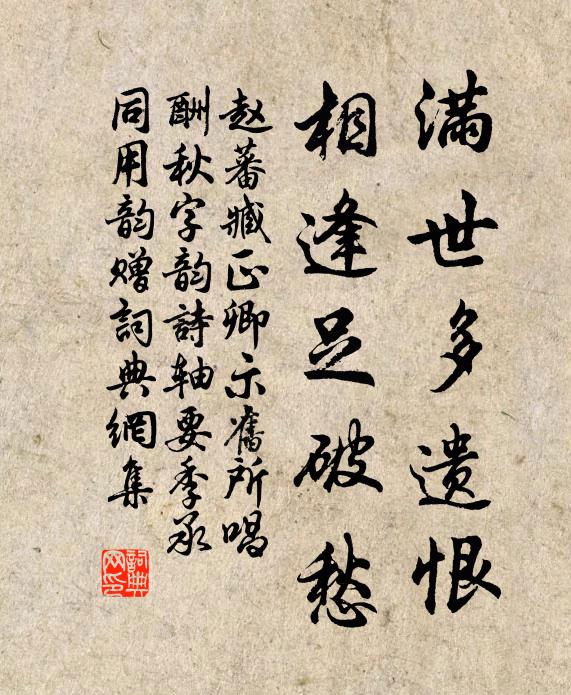 满世多遗恨
相逢足破愁
赵蕃臧正卿示舊所唱
酬秋字韵詩轴要季承
同用韵赠詞典網集
詞典网印